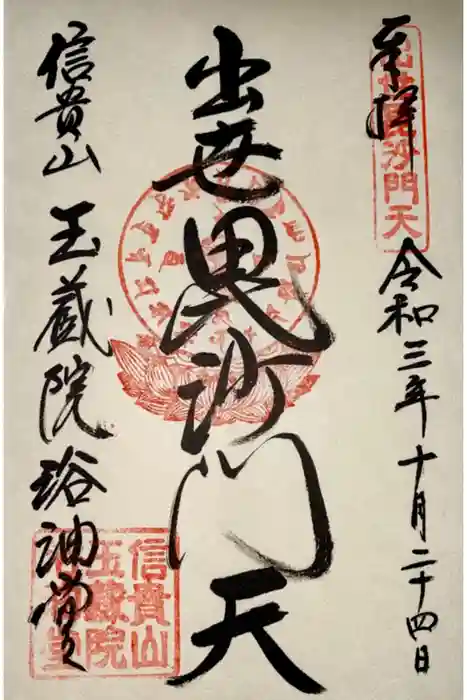 奉拝
出世毘沙門天
令和三年十月二十四日
出世毘沙門天
信貴山 玉蔵院 浴油堂
信貴山
玉蔵院
浴油堂